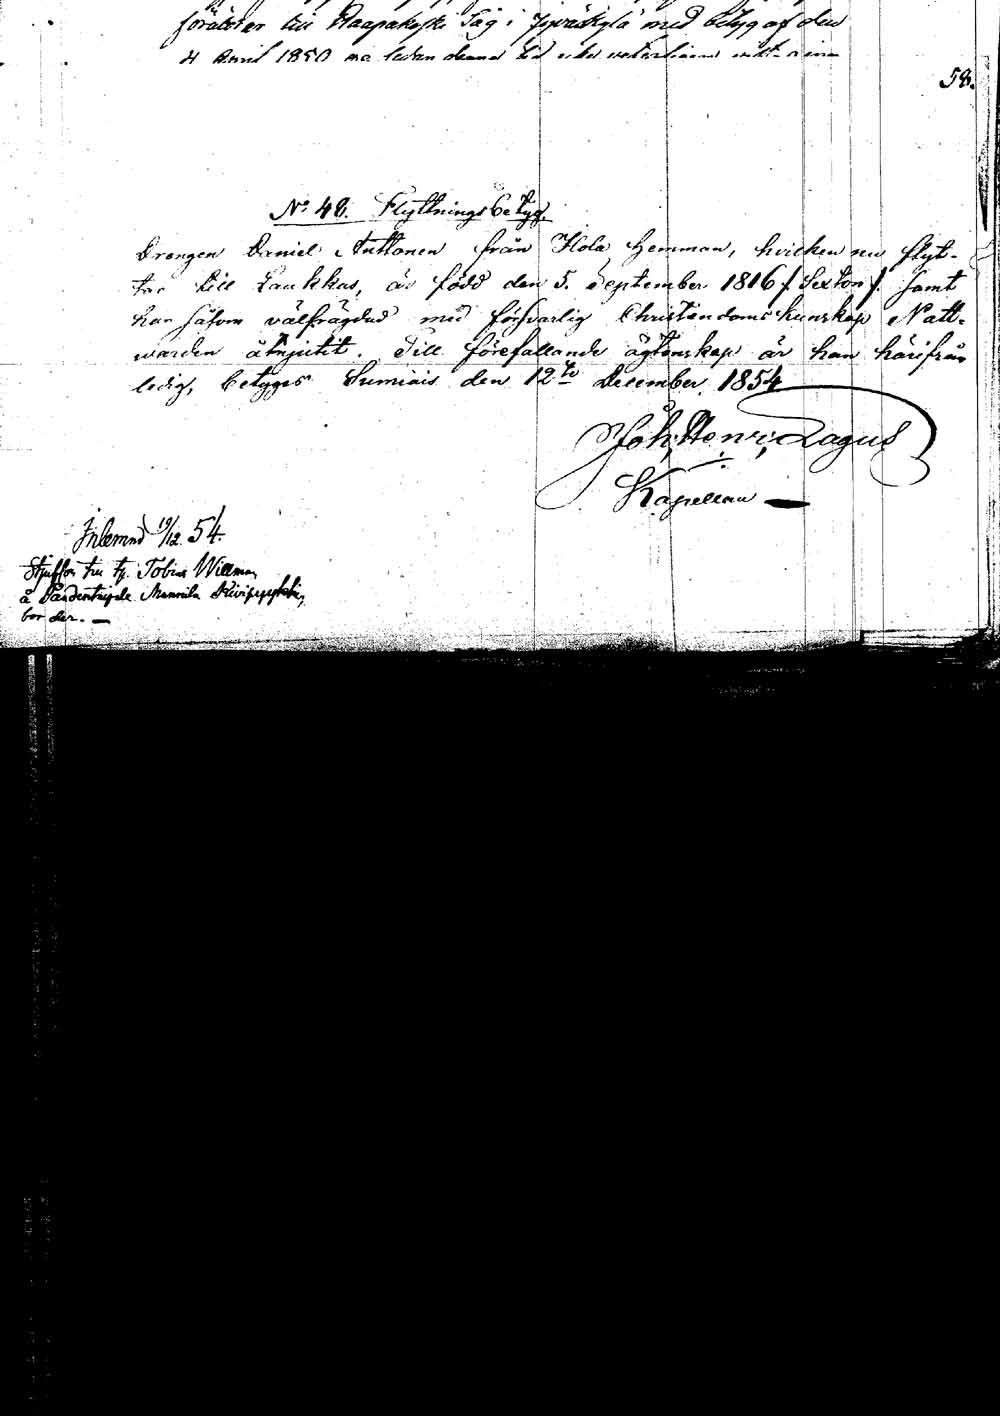 till Haapakoski Såg i Jyväskylä med betyg af den
4 April 1850
58.
No 48. Flyttningsbetyg.
Drengen Daniel Anttonen från Hola hemman, hvilken nu flyt-
tar till Laukkas, är född den 5. September 1816 /: Sexton :/ samt
har såsom välfrägdad med försvarlig Christendoms kunskap Natt-
warden åtnjutit. Till förefallande ägtenskap är han härifrån
ledig, betygas Sumiais den 12te December 1854
Joh. Henr. Lagus
Kapellan
Inlemnad 19/12 54.
Tobias Willman
å
bor der.